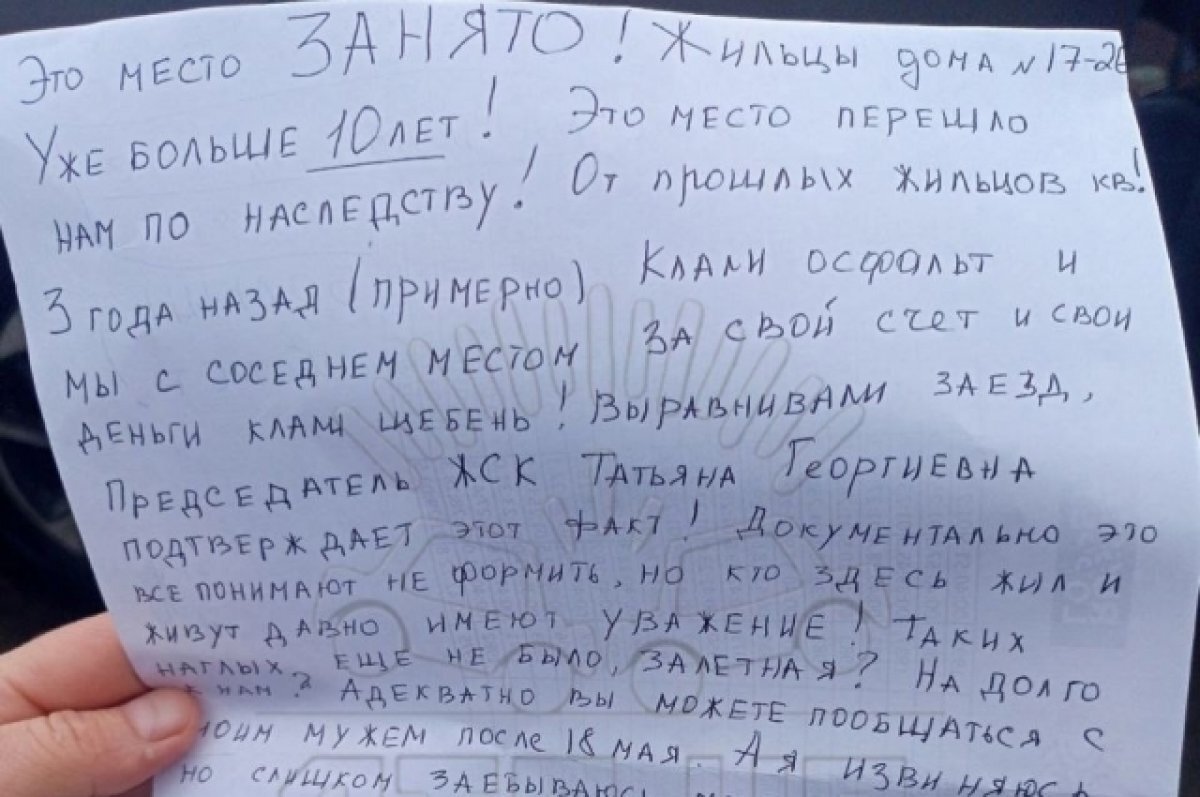 Это место ЗАНЯТО! Жильцы дома N 17-26
Уже больше 10 лет! Это место перешло
нам по наследству! От прошлых жильцов кв!
3 года назад (примерно) Клали осфальт и
мы с соседнем местом за свой счет и свои
деньги клали щебень! Выравнивали заезд,
Председатель ЖСК Татьяна Георгиевна
подтверждает этот факт! Документально это
все понимают не формить, но кто здесь жил и
живут давно имеют уважение! Таких
наглых еще не было, залетная? На долго
к нам? Адекватно вы можете пообщаться с
моим мужем после 18 мая. А я извиняюсь
но слишком заебываюсь